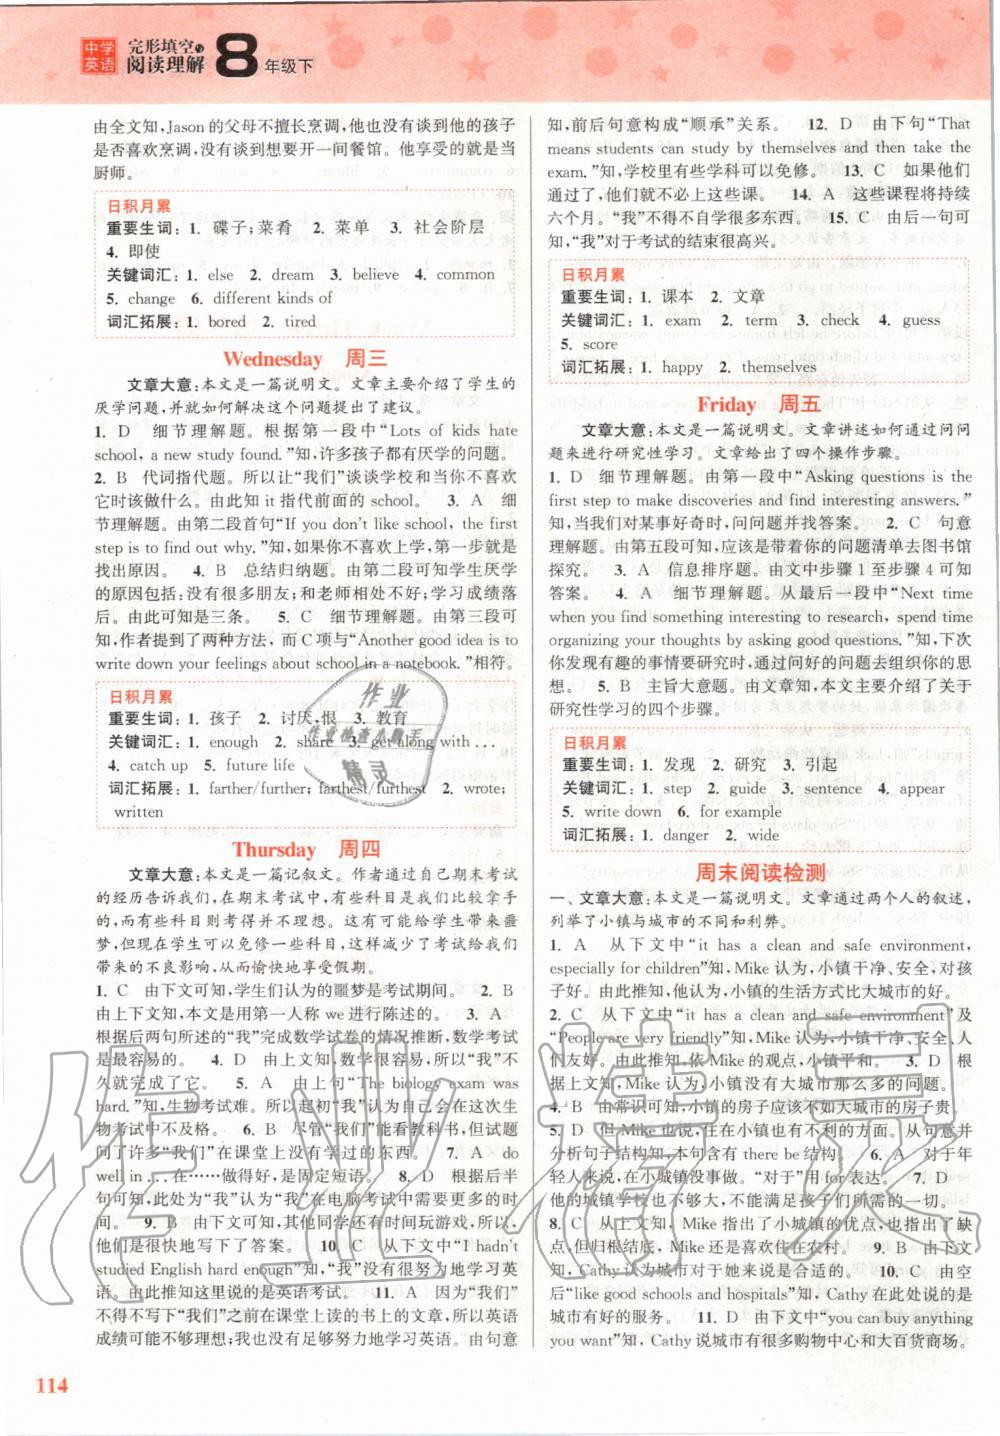 中学英语 完形填空与阅读理解 8年级下
由全文知,Jason的父母不擅长烹调,他也没有谈到他的孩子
是否喜欢烹调,没有谈到想要开一间餐馆。他享受的就是当
厨师。
日积月累
重要生词:1. 碟子;菜肴 2. 菜单 3. 社会阶层
4. 即使
关键词汇:1. else 2. dream 3. believe 4. common
5. change 6. different kinds of
词汇拓展:1. bored 2. tired
Wednesday 周三
文章大意:本文是一篇说明文。文章主要介绍了学生的
厌学问题,并就如何解决这个问题提出了建议。
1. D 细节理解题。根据第一段中“Lots of kids hate
school, a new study found.”知,许多孩子都有厌学的问题。
2. B 代词指代题。所以让“我们”谈谈学校和当你不喜欢
它时该做什么。由此知it指代前面的school。 3. A 细
节理解题。由第二段首句“If you don't like school, the first
step is to find out why.”知,如果你不喜欢上学,第一步就是
找出原因。 4. B 总结归纳题。由第二段可知学生厌学
的原因有:没有很多朋友;和老师相处不好;学习成绩落
后。由此可知是三条。 5. C 细节理解题。由第三段可
知,作者提到了两种方法,而C项与“Another good idea is to
write down your feelings about school in a notebook.”相符。
日积月累
重要生词:1. 孩子 2. 讨厌,恨 3. 教育
关键词汇:1. enough 2. share 3. get along with ...
4. catch up 5. future life
词汇拓展:1. farther/further; farthest/furthest 2. wrote;
written
Thursday 周四
文章大意:本文是一篇记叙文。作者通过自己期末考试
的经历告诉我们,在期末考试中有些科目是我们比较拿手
的,而有些科目则考得并不理想。这可能会给学生带来噩
梦,但现在学生可以免修一些科目,这样减少了考试给我们
带来的不良影响,从而愉快地享受假期。
1. C 由下文可知,学生们认为的噩梦是考试期间。 2. B
由上下文知,本文是用第一人称we进行陈述的。 3. A
根据后两句所述的“我”完成数学试卷的情况推断,数学考试
是最容易的。 4. D 由上文知,数学很容易,所以“我”不
久就完成了它。 5. A 由上句“The biology exam was
hard.”知,生物考试难。所以由此推知“我”认为自己在这次生
物考试中不及格。 6. B 尽管“我们”能看教科书,但试题
问了许多“我们”在课堂上没有学到的东西。 7. A do
well in ...在……做得好,是固定短语。 8. D 根据后半
句可知,此处为“我”认为“我”在电脑考试中需要更多的
时间。 9. B 由下句知,其他同学还有时间玩游戏,所以,
他们是很快地写下了答案。 10. C 从下文中“I hadn't
studied English hard enough”知,“我”没有努力地学习英
语。由此推知这里说的是英语考试。 11. A 因为“我们”
不得不写下“我们”之前在课堂上读的书上的文章,所以英语
成绩可能不够理想;我也没有足够努力地学习英语。由句意
知,前后句意构成“顺承”关系。 12. D 由下句“That
means students can study by themselves and then take the
exam.”知,学校里有些学科可以免修。 13. C 如果他们
通过了,他们就不必上这些课。 14. A 这些课程将持续
六个月。“我”不得不自学很多东西。 15. C 由后一句可
知,“我”对于考试的结束很高兴。
日积月累
重要生词:1. 课本 2. 文章
关键词汇:1. exam 2. term 3. check 4. guess
5. score
词汇拓展:1. happy 2. themselves
Friday 周五
文章大意:本文是一篇说明文。文章讲述如何通过问问
题来进行研究性学习。文章给出了四个操作步骤。
1. D 细节理解题。由第一段中“Asking questions is the
first step to make discoveries and find interesting answers.”
知,当我们对某事好奇时,问问题并找答案。 2. C 句意
理解题。由第五段可知,应该是带着你的问题清单去图书馆
探究。 3. A 信息排序题。由文中步骤1至步骤4可知
答案。 4. A 细节理解题。从最后一段中“Next time
when you find something interesting to research, spend time
organizing your thoughts by asking good questions.”知,下次
你发现有趣的事情要研究时,通过问好的问题去组织你的思
想。 5. B 主旨大意题。由文章知,本文主要介绍了关于
研究性学习的四个步骤。
日积月累
重要生词:1. 发现 2. 研究 3. 引起
关键词汇:1. step 2. guide 3. sentence 4. appear
5. write down 6. for example
词汇拓展:1. danger 2. wide
周末阅读检测
一、文章大意:本文是一篇说明文。文章通过两个人的叙述,
列举了小镇与城市的不同和利弊。
1. A 从下文中“it has a clean and safe environment,
especially for children”知,Mike认为,小镇干净、安全,对孩
子好。由此推知,他认为小镇的生活方式比大城市的好。
2. C 由下文“it has a clean and safe environment”及
“People are very friendly”知,Mike认为,小镇干净、安全、人
们友好。由此推知,依Mike的观点,小镇平和。 3. D 根
据上下文知,Mike认为,小镇没有大城市那么多的问题。
4. B 由常识可知,小镇的房子应该不如大城市的房子贵。
5. D 但Mike也说,住在小镇也有不利的方面。由句意并
分析句子结构知,本句含有there be结构。 6. A 对于年
轻人来说,没有太多的事情要做。“对于”用for表达。 7. D
他的城镇学校也很小,不能满足孩子们所需的一切。
8. C 从上文知,Mike指出了小城镇的优点,也指出了缺
点,但归根结底,Mike还是喜欢住在农村。 9. B 由下文
知,Cathy认为城市对于她来说是合适的。 10. C 由空
后“like good schools and hospitals”知,Cathy在此处说的是
城市有好的服务。 11. D 由下文中“you can buy anything
you want”知,Cathy说城市有很多购物中心和大百货商场。
114
作业
作业检查小助手
精灵
作业精灵